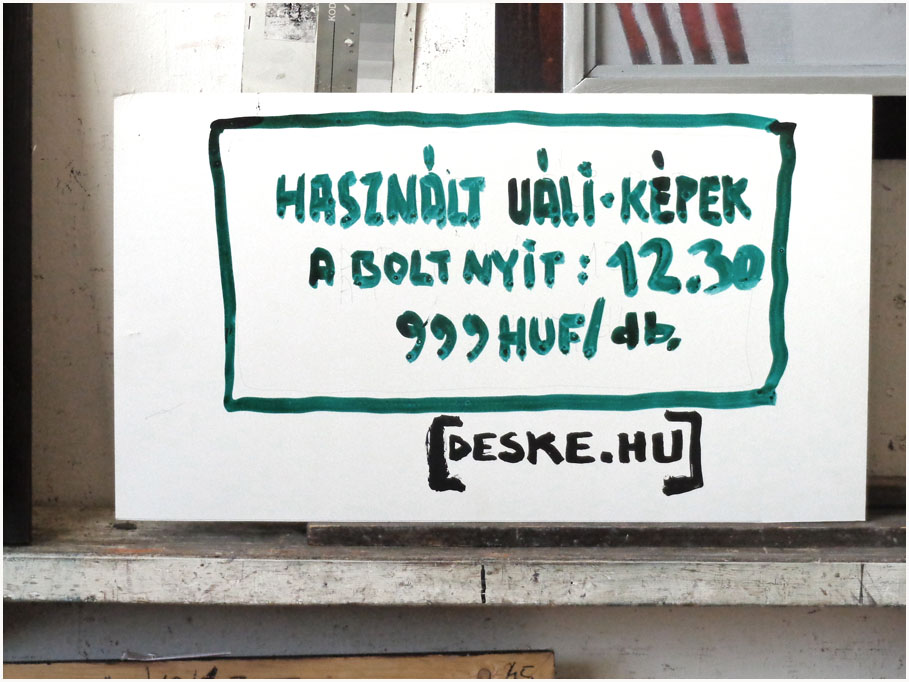 HASZNÁLT VÁLI-KÉPEK
A BOLT NYIT: 12.30
999 HUF/db.
[DESKE.HU]